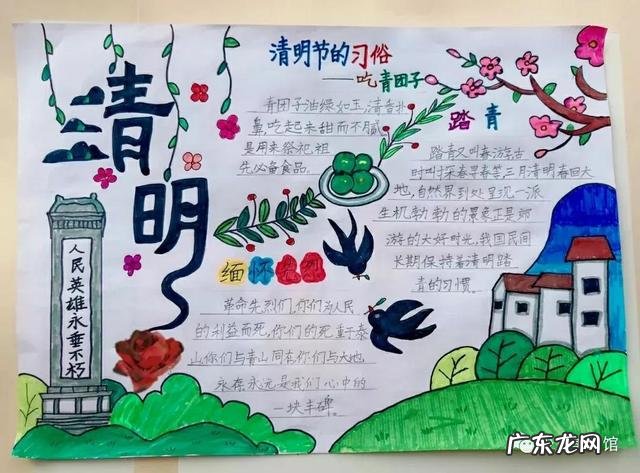 清明
清明节的习俗
——吃青团子
青团子油绿如玉,清香扑
鼻,吃起来甜而不腻
是用来祭祀祖
先必备食品。
踏青
踏青又叫春游古
时叫探春寻春等三月清明春回大
地,自然界到处呈现一派
生机勃勃的景象正是郊
游的大好时光,我国民间
长期保持着清明踏
青的习惯。
缅怀先烈
革命先烈们,你们为人民
的利益而死,你们的死重于泰
山你们与青山同在你们与大地
永存永远是我们心中的
一块丰碑。
人民英雄永垂不朽
馆
广东龙网